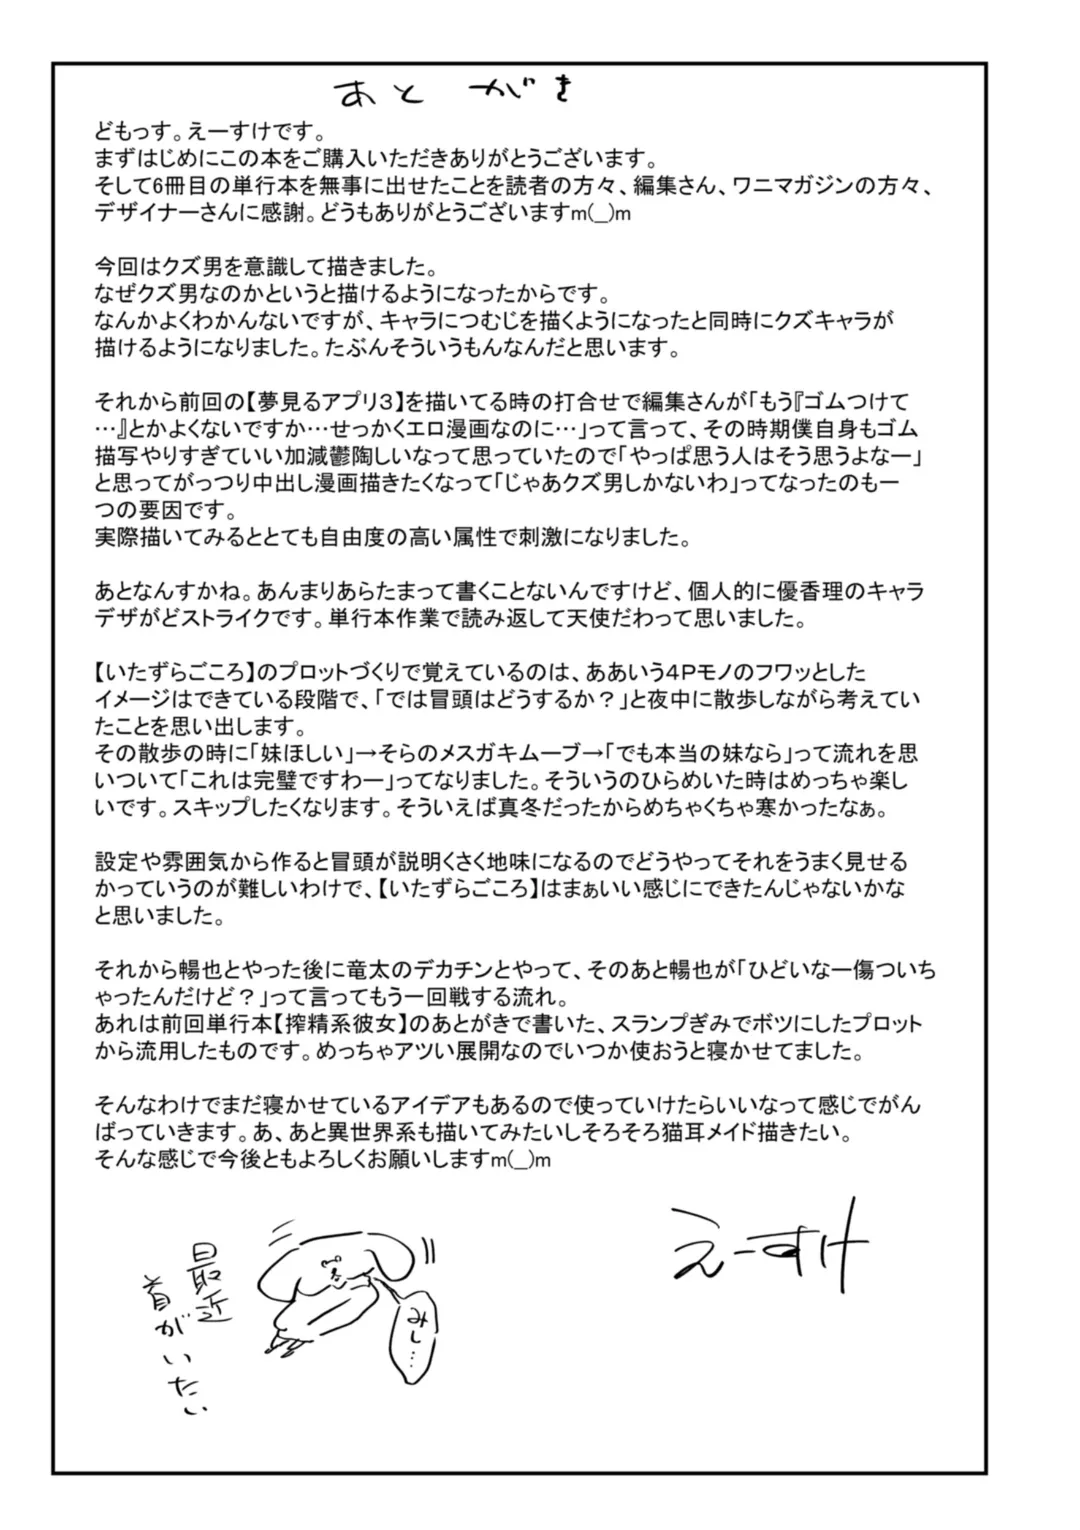 あとがき
どもっす。えーすけです。
まずはじめにこの本をご購入いただきありがとうございます。
そして6冊目の単行本を無事に出せたことを読者の方々、編集さん、ワニマガジンの方々、
デザイナーさんに感謝。どうもありがとうございますm(__)m
今回はクズ男を意識して描きました。
なぜクズ男なのかというと描けるようになったからです。
なんかよくわかんないですが、キャラにつむじを描くようになったと同時にクズキャラが
描けるようになりました。たぶんそういうもんなんだと思います。
それから前回の【夢見るアプリ３】を描いてる時の打合せで編集さんが「もう『ゴムつけて
…』とかよくないですか…せっかくエロ漫画なのに…」って言って、その時期僕自身もゴム
描写やりすぎていい加減鬱陶しいなって思っていたので「やっぱ思う人はそう思うよなー」
と思ってがっつり中出し漫画描きたくなって「じゃあクズ男しかないわ」ってなったのも一
つの要因です。
実際描いてみるととても自由度の高い属性で刺激になりました。
あとなんすかね。あんまりあらたまって書くことないんですけど、個人的に優香理のキャラ
デザがどストライクです。単行本作業で読み返して天使だわって思いました。
【いたずらごころ】のプロットづくりで覚えているのは、ああいう４Ｐモノのフワッとした
イメージはできている段階で、「では冒頭はどうするか？」と夜中に散歩しながら考えてい
たことを思い出します。
その散歩の時に「妹ほしい」→そらのメスガキムーブ→「でも本当の妹なら」って流れを思
いついて「これは完璧ですわー」ってなりました。そういうのひらめいた時はめっちゃ楽し
いです。スキップしたくなります。そういえば真冬だったからめちゃくちゃ寒かったなぁ。
設定や雰囲気から作ると冒頭が説明くさく地味になるのでどうやってそれをうまく見せる
かっていうのが難しいわけで、【いたずらごころ】はまぁいい感じにできたんじゃないかな
と思いました。
それから暢也とやった後に竜太のデカチンとやって、そのあと暢也が「ひどいなー傷ついち
ゃったんだけど？」って言ってもう一回戦する流れ。
あれは前回単行本【搾精系彼女】のあとがきで書いた、スランプぎみでボツにしたプロット
から流用したものです。めっちゃアツい展開なのでいつか使おうと寝かせてました。
そんなわけでまだ寝かせているアイデアもあるので使っていけたらいいなって感じでがん
ばっていきます。あ、あと異世界系も描いてみたいしそろそろ猫耳メイド描きたい。
そんな感じで今後ともよろしくお願いしますm(__)m
えーすけ
みし…
最近
首がいたい